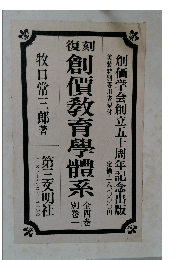 創価学会創立五十周年記念出版
復刻
創價教育學體系
全四巻
別巻一
牧口常三郎著
第三文明社